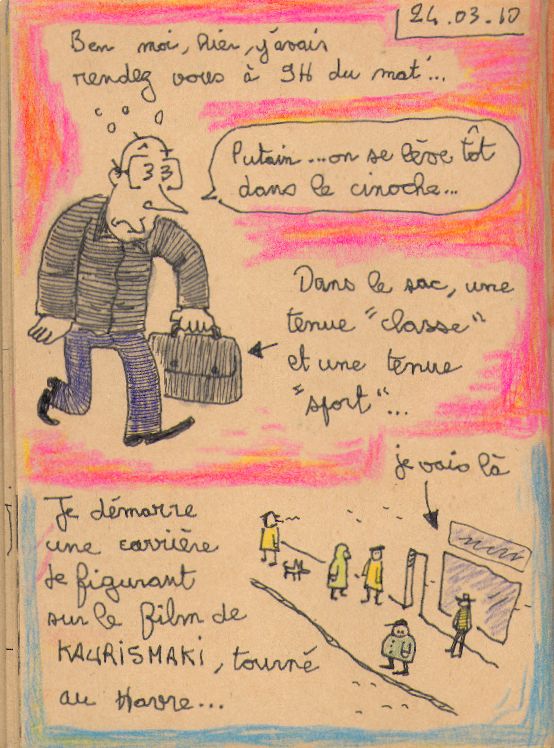 24.03.10
Ben moi, hier, j'avais
rendez vous à 9H du mat'...
Putain... on se lève tôt
dans le cinoche...
Dans le sac, une
tenue "classe"
et une tenue
"sport"...
je vais là
Je démarre
une carrière
de figurant
sur le film de
KAURISMAKI, tourné
au Havre...